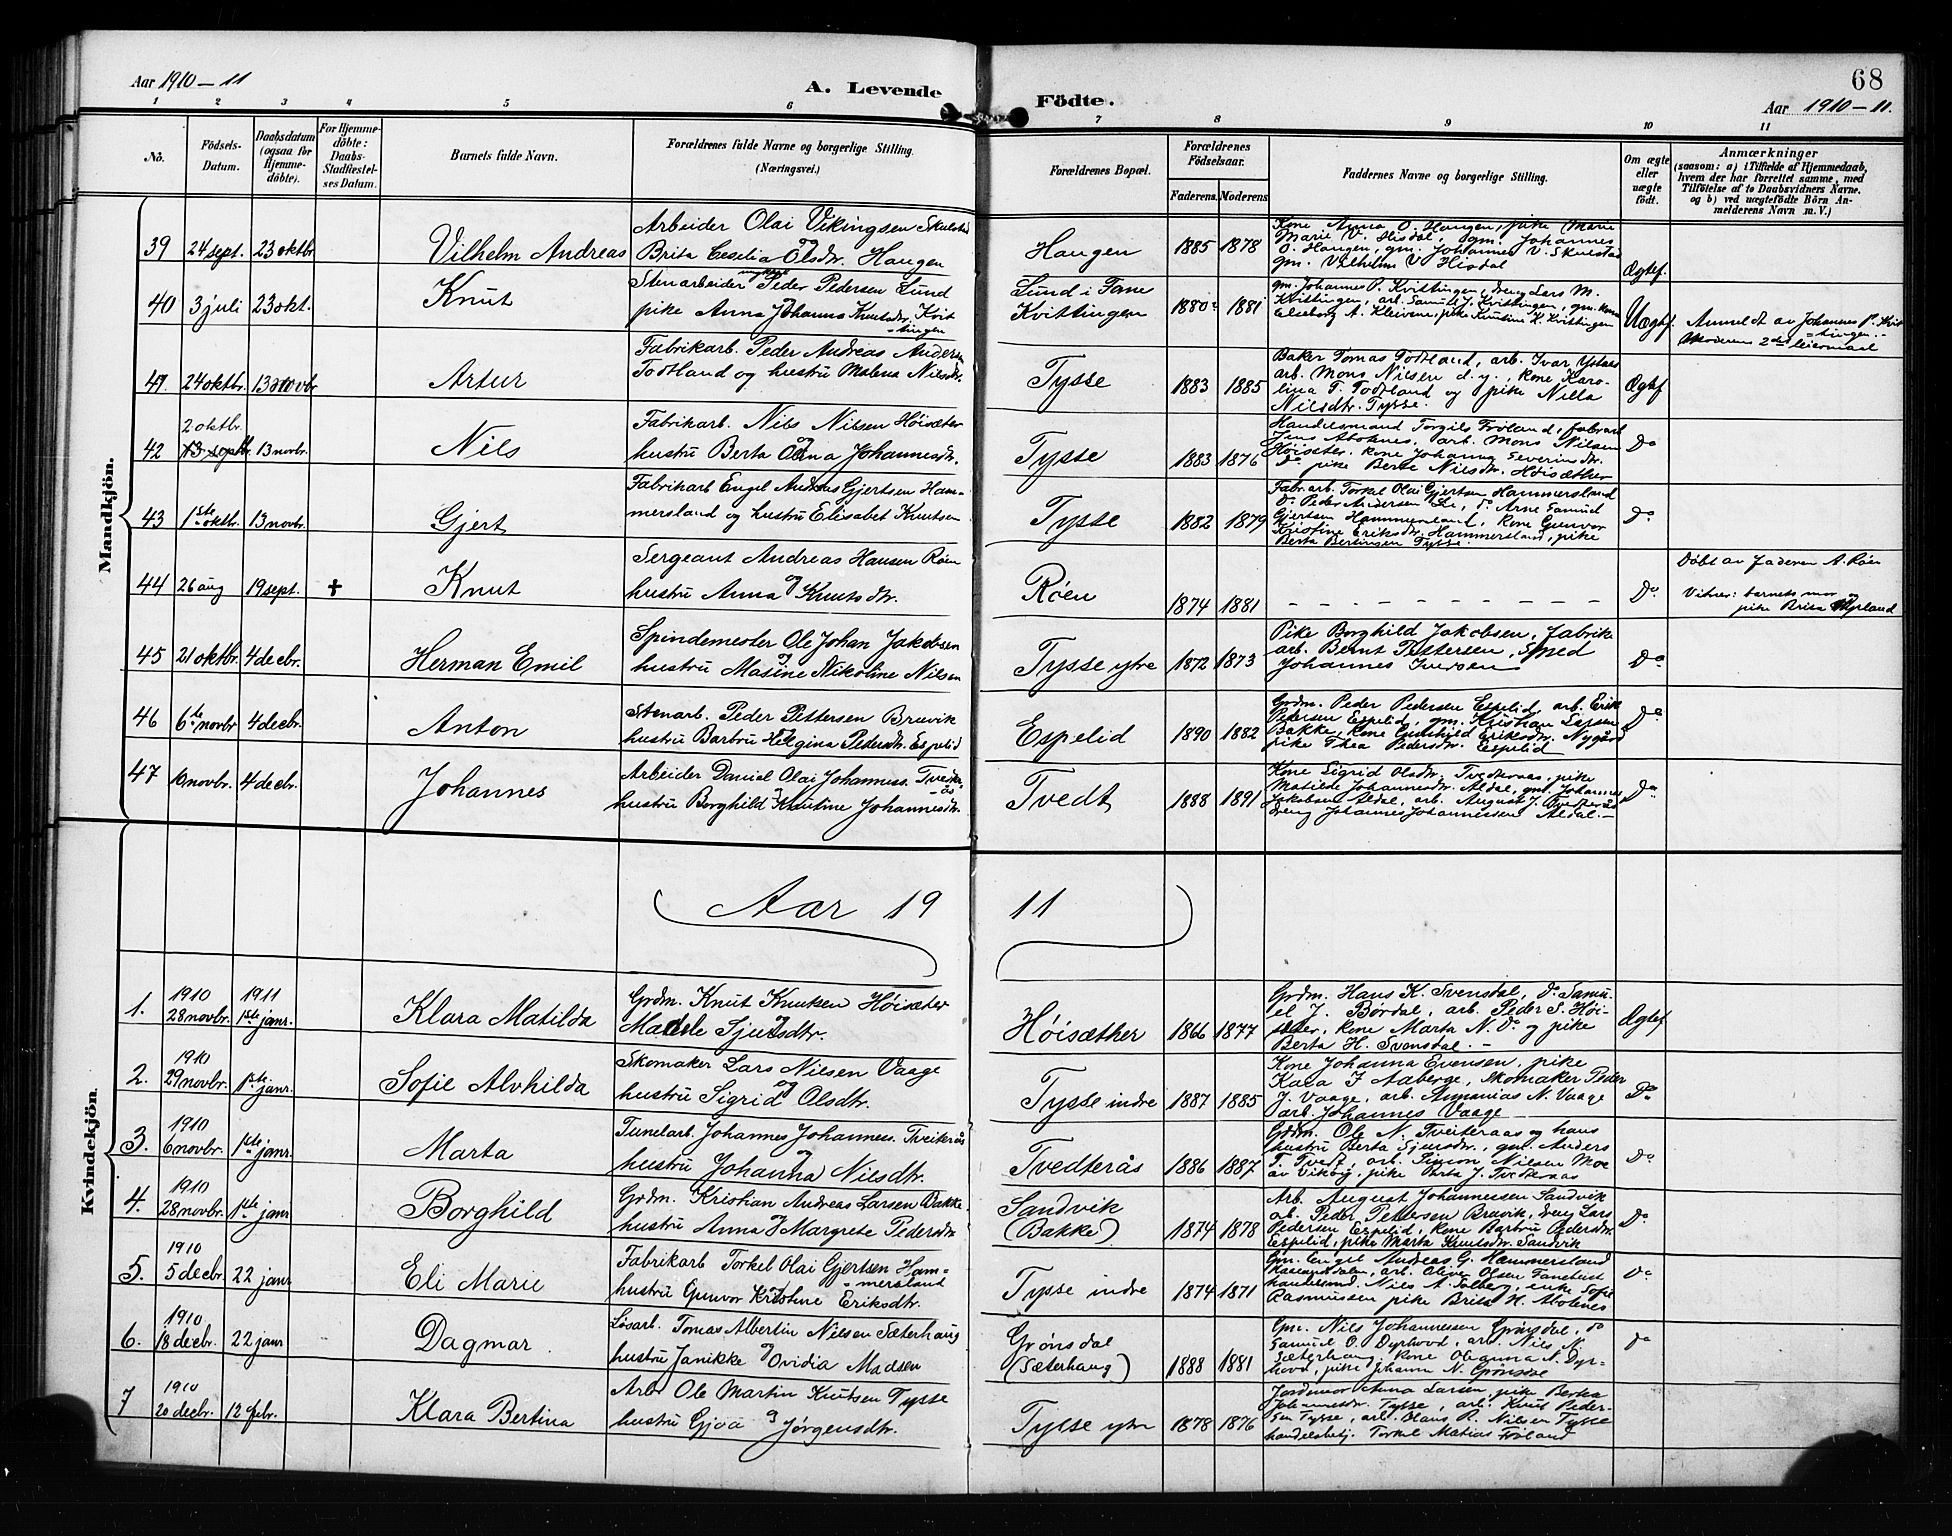 Aar 1910-11
A. Levende Födte.
68
Aar 1910-11.
1 2 3 4 5 6 7 8 9 10 11
No.
Födsels-Datum.
Daabsdatum (ogsaa for Hjemme-döbte).
For Hjemme-döbte: Daabs-Stadfæstel-ses Datum.
Barnets fulde Navn.
Forældrenes fulde Navne og borgerlige Stilling. (Næringsvei.)
Forældrenes Bopæl.
Forældrenes Födselsaar.
Faderens. Moderens.
Faddernes Navne og borgerlige Stilling.
Om ægte eller uægte födt.
Anmærkninger
(saasom: a) i Tilfælde af Hjemmedaab, hvem der har forrettet samme, med Tilföielse af to Daabsvidners Navne. og b) ved uægtefödte Börn An-melderens Navn m. V.)
Mandkjön.
39 24 sept. 23 oktbr Vilhelm Andreas
Arbeider Olai Vikingsen Skulstad
Brita Cecilia Olsdtr. Haugen
Haugen 1885 1878
Kone Anna O. Haugen, pike Marie
Marie V. Hisdal, gm. Johannes
O. Haugen, gm. Johannes V. Skulstad
gm. Vilhelm V. Hisdal
Ægtef.
40 3 juli 23 okt. Knut
Stenarbeider Peder Pedersen Lund
pike Anna Johanna Knutsdr. Kvit
tingen
Lund i Fane
Kvittingen 1880 1881
gm. Johannes P. Kvittingen, dreng Lars M.
Kvittingen, arb. Samuel J. Kvittingen, gm. kone
Elseborg A. Kleivene, pike Kristine K. Kvittingen
Uægtef.
Anmeldt av Johannes P. Kvit
tingen.
Moderens 2det leiermaal
41 24 oktbr. 13 novbr Artur
Fabrikarb. Peder Andreas Andersen
Todtland og hustru Malena Nilsdtr.
Tysse 1883 1885
Baker Tomas Todtland, arb. Ivar Ystaas
arb. Mons Nilsen d.y., kone Karo-
lina T. Todtland og pike Nilla
Nilsdtr. Tysse.
Ægtef
42 2 oktbr. 13 septbr. 13 novbr. Nils
Fabrikarb. Nils Nilsen Höisæter
hustru Berta Olina Johannesdtr.
Tysse 1883 1876
Handelsmand Torgils Fröland, fabrarb
Jens Aldnes, arb. Mons Nilsen
Höisæter, kone Johanna Severindtr.
Do pike Berte Nilsdtr. Höisæther
Do
43 1ste oktbr. 13 novbr. Gjert
Fabrikarb Engel Andreas Gjertsen Ham-
mersland og hustru Elisabet Knutsen
Tysse 1882 1879
Fabr.arb. Torkel Olai Gjertsen Hammersland
Do Peder Andersen Li, Do Arne Samuel
Gjertsen Hammersland, kone Gunvor
Kristine Eriksdtr. Hammersland, pike
Berta Bertinsen Tysse.
Do
44 26 aug 19 sept. + Knut
Sergeant Andreas Hansen Röen
hustru Anna Knutsdtr.
Röen 1874 1881
Do
Döbt av faderen A. Röen
Vitner: barnets mor og
pike Brita
45 21 oktbr. 4 decbr. Herman Emil
Spindemester Ole Johan Jakobsen
hustru Masine Nikoline Nilsen
Tysse ytre 1872 1873
Pike Borghild Jakobsen, fabrik
arb. Bernt Pettersen, Smed
Johannes Iversen
Do
46 6te novbr 4 decbr. Anton
Stenarb. Peder Pettersen Bruvik
hustru Barbru Helgina Pedersdtr. Espelid
Espelid 1890 1882
Grdm. Peder Pedersen Espelid, arb. Erik
Petersen Espelid, gm. Kristian Larsen
Bakke, kone Gunhild Eriksdtr. Nygård
pike Thea Pedersdtr. Espelid
Do
47 10 novbr. 4 decbr. Johannes
Arbeider Daniel Olai Johanness. Tveiter
ås
hustru Borghild Kristine Johannesdtr.
Tvedt 1888 1891
Kone Sigrid Olsdtr. Tvedteraas, pike
Matilde Johannesdtr. Aldal, gm. Johannes
Jakobsen Aldal, arb. August J. Tvedteraas
dreng Johannes Johannessen Aldal.
Do
Aar 19 11
Kvindekjön.
1. 1910 28 novbr. 1911 1ste janr. Klara Matilda
Grdm. Knut Knutsen Höisæter
Madele Sjursdtr.
Höisæther 1866 1877
Grdm. Hans K. Svensdal, Do Samu-
el J. Bordal, arb. Peder S. Höi-
sæter, kone Marta N. Do og pike
Berta H. Svensdal.
Ægtef
2. 1910 29 novbr. 1ste janr. Sofie Alvhilda
Skomaker Lars Nilsen Vaage
hustru Sigrid Olsdtr.
Tysse indre 1887 1885
Kone Johanna Evensen, pike
Kara J Aaberge, skomaker Peder
J. Vaage, arb. Annanias N. Vaage
arb. Johannes Vaage
Do
3. 1910 6 novbr. 1ste janr. Marta
Tunelarb. Johannes Johanness. Tveiterås
hustru Johanna Nilsdtr.
Tvedterås 1886 1887
Grdm. Ole N. Tveiteraas og hans
hustru Berta Sjursdtr., gm. Anders
T. Tvedt, arb. Simon Nilsen Moe
av Vikög, pike Marta J. Tvedteraas
Do
4. 1910 28 novbr. 1ste janr Borghild
Grdm. Kristian Andreas Larsen Bakke
hustru Anna Margrete Pedersdtr.
Sandvik
(Bakke) 1874 1878
Arb. August Johannessen Sandvik
arb. Peder Pettersen Bruvik, dreng Lars
Pedersen Espelid, kone Barbru Pedersdtr.
Espelid, pike Marta Knutsdtr. Sandvik
Do
5. 1910 5 decbr. 22 janr Eli Marie
Fabrikarb Torkel Olai Gjertsen Ham-
mersland
hustru Gunvor Kristine Eriksdtr.
Tysse indre 1874 1871
Gm. Engel Andreas G. Hammersland
arb. Oliver Olsen
handelsmd. Nils A. Solberg, enke Sofie
Rasmussen pike Brita H. Aldnes
Do
6. 1910 18 decbr. 22 janr Dagmar
Lösarb. Tomas Albertin Nilsen Sæterhaug
hustru Janikke Ovidia Madsen
Grönsdal
(Sæterhaug) 1888 1881
Gm. Nils Johannessen Grönsdal, do
Samuel O. Dyrhovd, arb. Nils N.
Sæterhaug, kone Oleanna N. Dyr-
hovd, pike Johanna N. Grönsdal
Do
7 1910 20 decbr. 12 febr. Klara Bertina
Arb. Ole Martin Knutsen Tysse
hustru Gjöa Jörgensdtr.
Tysse ytre 1878 1876
Jordmor Anna Larsen, pike Berta
Johannesdtr. Tysse, arb. Knut Peder-
sen Tysse, arb. Hans R. Nilsen Tysse
handelsbetj. Torkel Matias Fröland